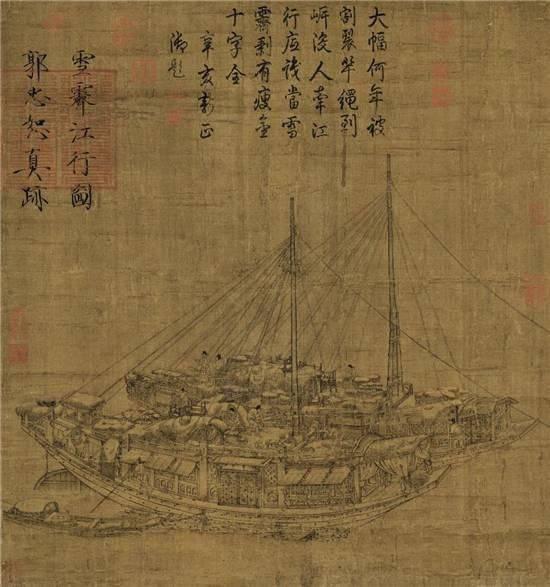 大幅何年被
割裂繩到
岸没人牽江
行當雪
霽剩有瘦金
十字全
辛亥新正
御題
雪霽江行圖
郭忠恕真跡